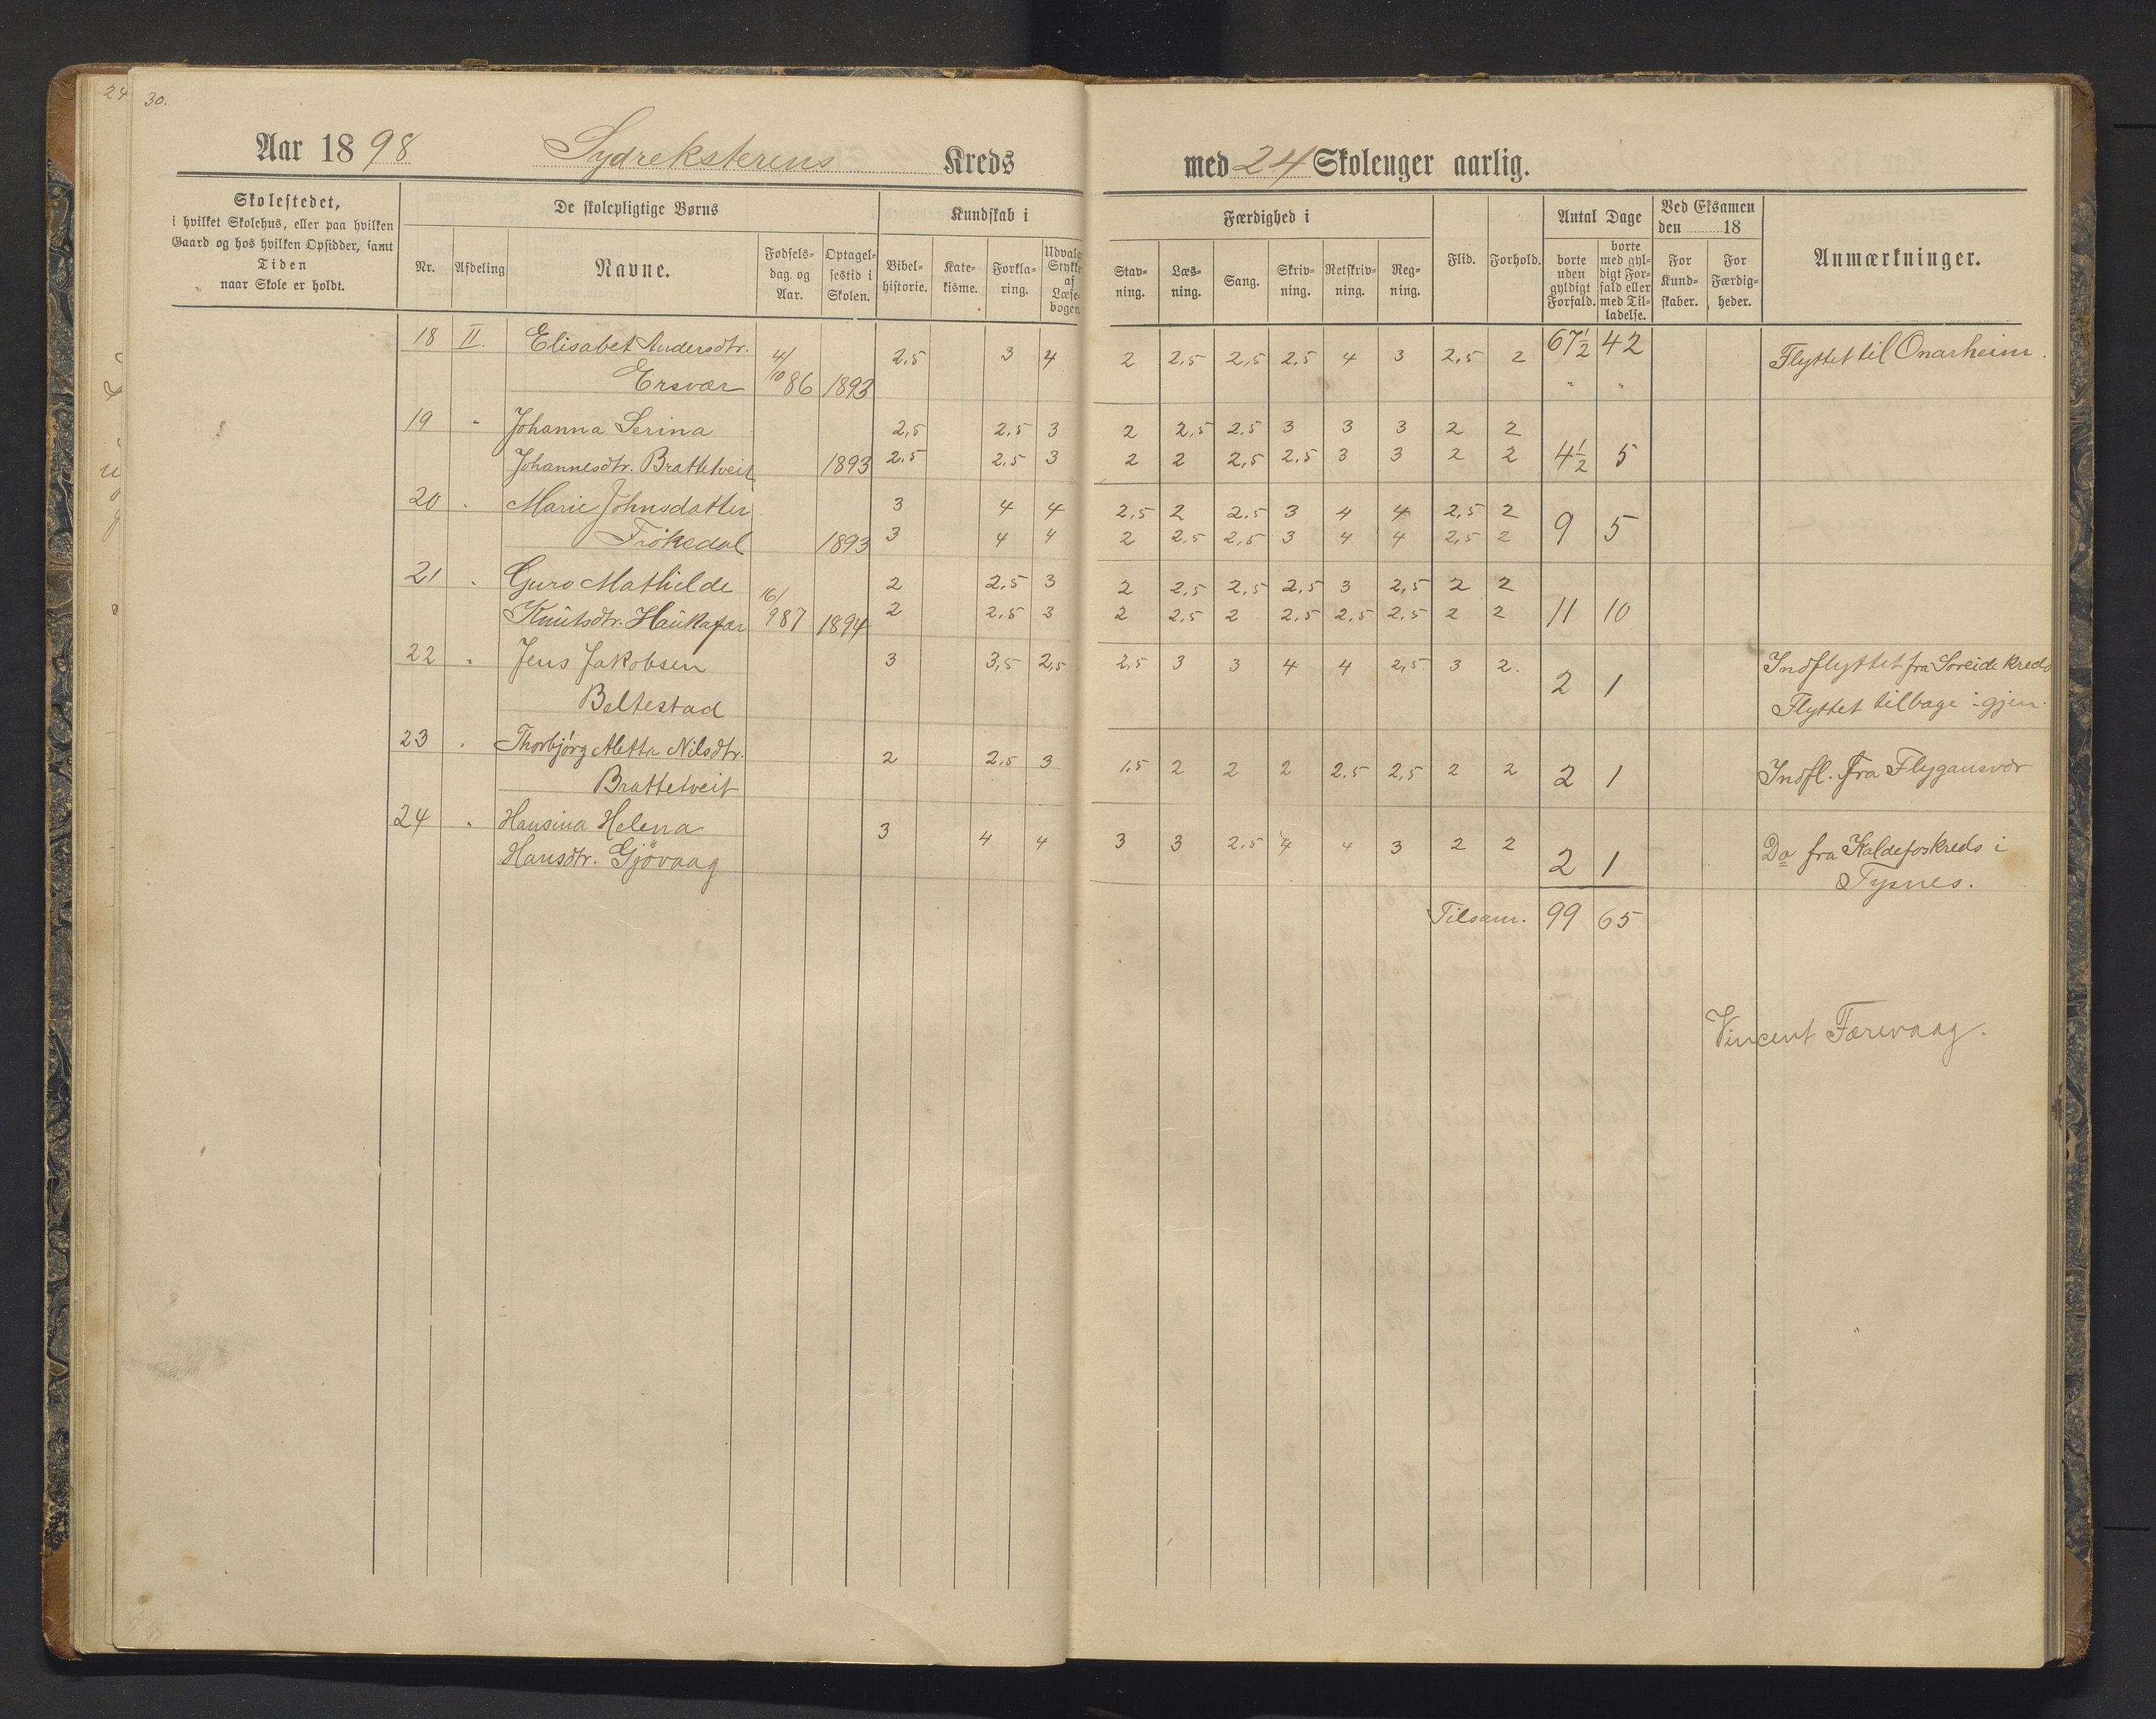 24 30.
Aar 1898 Sydreksterens Kreds
med 24 Skoleuger aarlig.
Skolestedet,
i hvilket Skolehus, eller paa hvilken
Gaard og hos hvilken Opsidder, samt
Tiden
naar Skole er holdt.
De skolepligtige Børns
Nr. Afdeling Navne. Fødsels-
dag. og
Aar. Optagel-
sestid i
Skolen.
Kundskab i
Bibel-
historie. Kate-
kisme. Forkla-
ring. Udvalg
Stykke
af
Læse-
bogen
Færdighed i
Stav-
ning. Læs-
ning. Sang. Skriv-
ning. Retskriv-
ning. Reg-
ning.
Flid. Forhold.
Antal Dage
borte
uden
gyldigt
Forfald. borte
med gyl-
digt For-
fald eller
med Til-
ladelse.
Ved Eksamen
den 18
For
Kund-
skaber. For
Færdig-
heder.
Anmærkninger.
18 II. Elisabet Andersdtr. 2,5 3 4 2 2,5 2,5 2,5 4 3 2,5 2 67½ 42 Flyttet til Onarheim.
Ersvær 4/10 86 1893 " "
19 " Johanna Serina 2,5 2,5 3 2 2,5 2,5 3 3 3 2 2
Johannesdtr. Brattetveit 1893 2.5 2.5 3 2 2 2,5 2.5 3 3 2 2 4½ 5
20 " Marie Johnsdatter 3 4 4 2,5 2 2.5 3 4 4 2,5 2
Frökedal 1893 3 4 4 2 2,5 2,5 3 4 4 2,5 2 9 5
21 " Guro Mathilde 2 2,5 3 2 2,5 2,5 2,5 3 2,5 2 2
Knutsdtr. Haukafær 16/9 87 1894 2 2.5 3 2 2,5 2 2,5 2,5 2,5 2 2 11 10
22 " Jens Jakobsen 3 3,5 2,5 2,5 3 3 4 4 2,5 3 2. 2 1 Indflyttet fra Soreide kreds
Beltestad Flyttet tilbage igjen.
23 " Thorbjörg Aletta Nilsdtr. 2 2,5 3 1,5 2 2 2 2.5 2,5 2 2 2 1 Indfl. fra Flygansvær
Brattetveit
24 " Hansina Helena 3 4 4 3 3 2.5 4 4 3 2 2 2 1 Do fra Kaldefoskreds i
Hansdtr. Gjövaag Tysnes.
Tilsam. 99 65
Vincent Færevaag.